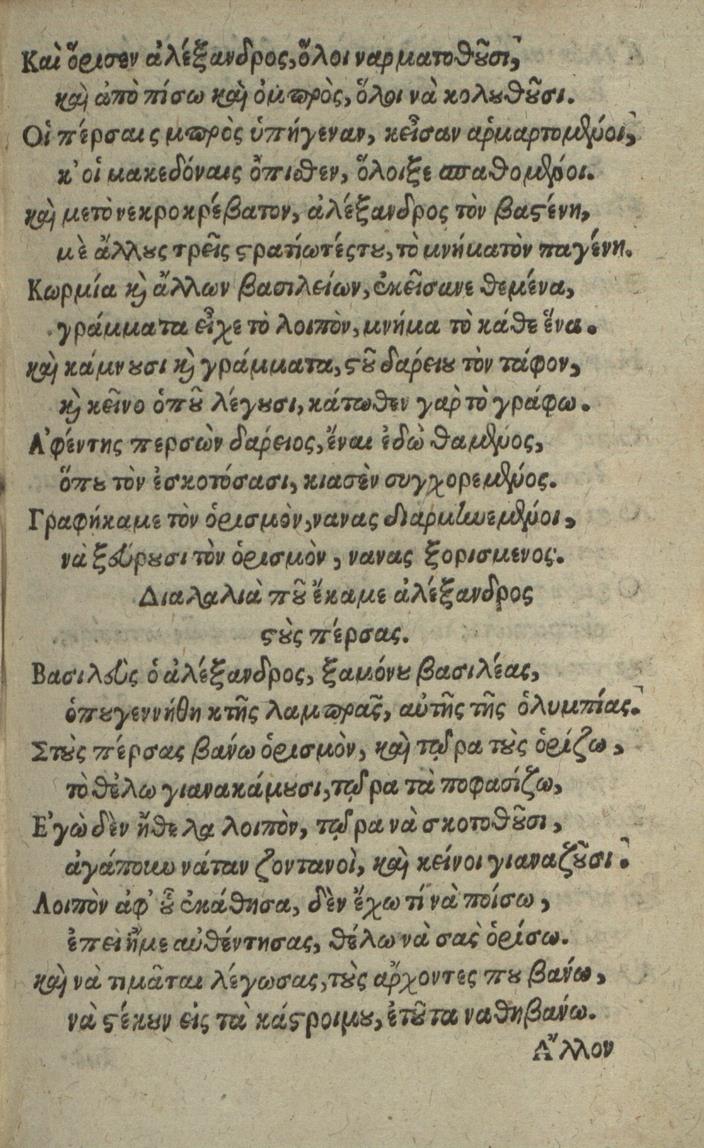 Καὶ ὅρισεν ἀλέξανδρος, ὅλοι ναρματοθοῦσι,
καὶ ἀπὸ πίσω καὶ ὀμπρὸς, ὅλοι νὰ κολουθοῦσι.
Οἱ πέρσαις μπρὸς ὑπήγεναν, κεἶσαν ἀρμαρτομένοι,
κ' οἱ μακεδόναις ὄπιθεν, ὅλοιξε σπαθομένοι.
καὶ μετὸνεκροκρέβατον, ἀλέξανδρος τὸν βαστένη,
μὲ ἄλλους τρεῖς στρατιωτέςτου, τὸ μνήματὸν παγένη.
Κωρμία καὶ ἄλλων βασιλείων, ἐκεῖσανε θεμένα,
γράμματα εἶχε τὸ λοιπὸν, μνήμα τὸ κάθε ἕνα.
καὶ κάμνουσι καὶ γράμματα, στοῦ δαρείου τὸν τάφον,
καὶ κεῖνο ὁποῦ λέγουσι, κάτωθεν γαρ τὸ γράφω.
Ἀφέντης περσὼν δαρεῖος, ἔναι ἐδὼ θαμένος,
ὅπου τὸν ἐσκοτόσασι, κιασὲν συγχορεμένος.
Γραφήκαμε τὸν ὁρισμὸν, νανας διαρμηνεμένοι,
νὰ ξεύρουσι τὸν ὁρισμὸν, νανας ξορισμενος.
Διαλαλιὰ ποῦ ἔκαμε ἀλέξανδρος
στοὺς πέρσας.
Βασιλεὺς ὁ ἀλέξανδρος, ξαμόνου βασιλέας,
ὁπουγεννήθη κτῆς λαμπρᾶς, αὐτῆς τῆς ὀλυμπίας.
Στοὺς πέρσας βανώ ὁρισμὸν, καὶ τώρα τοὺς ὁρίζω,
τὸ θέλω γιανακάμουσι, τώρα τὰ ποφασίζω,
Ἐγὼ δὲν ἤθελα λοιπὸν, τώρα νὰ σκοτοθοῦσι,
ἀγάπουν νάταν ζοντανοὶ, καὶ κείνοι γιαναζοῦσι.
Λοιπὸν ἀφ' οὗ ἐκάθησα, δὲν ἔχω τί νὰ ποίσω,
ἐπεὶ ἤμε αὐθέντησας, θέλω νὰ σὰς ὁρίσω.
καὶ νὰ τιμᾶται λέγωσας, τοὺς ἄρχοντες που βανώ,
νὰ στέκουν εἰς τὰ κάστροιμου, ἐτοῦτα ναθηβανώ.
Ἄλλον